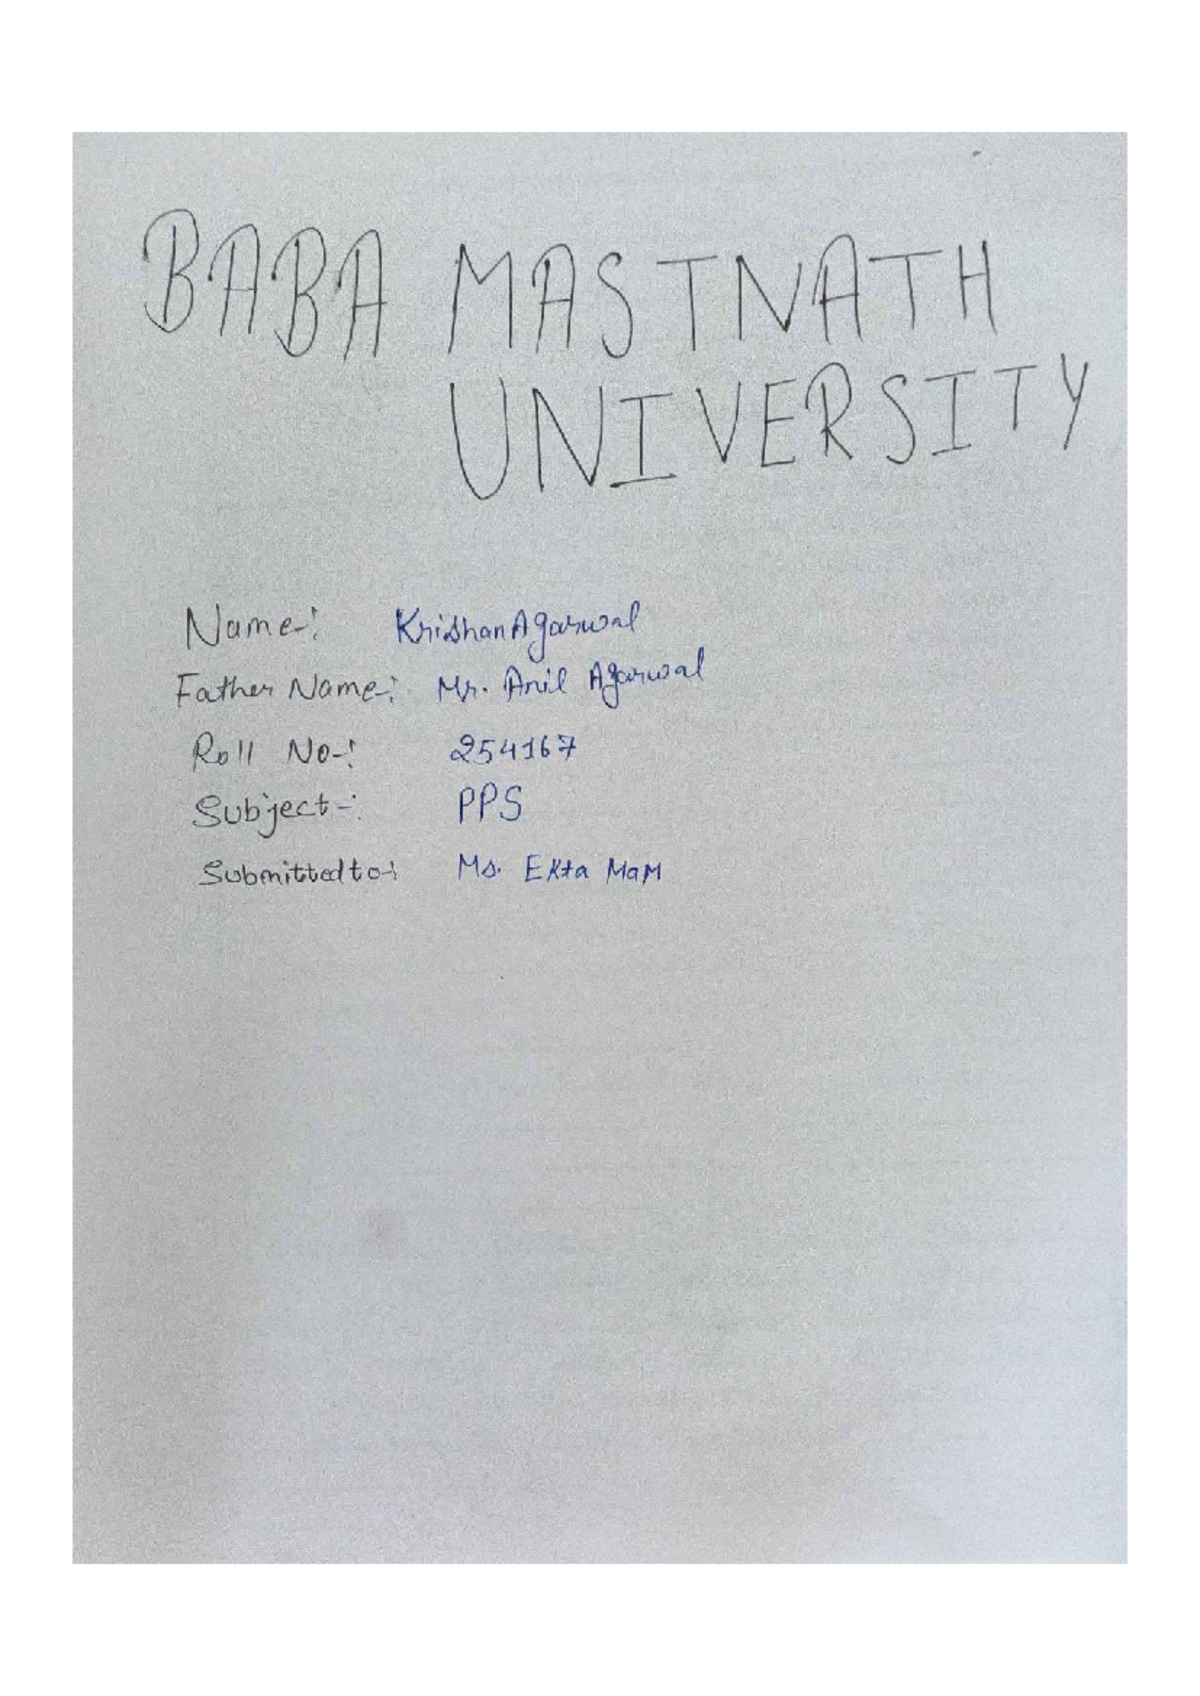 BABA MASTNATH
UNIVERSITY
Name-: Krishan Agarwal
Father Name-: Mr. Anil Agarwal
Roll No-: 254167
Subject-: PPS
Submitted to-: Ms. Ekta MaM